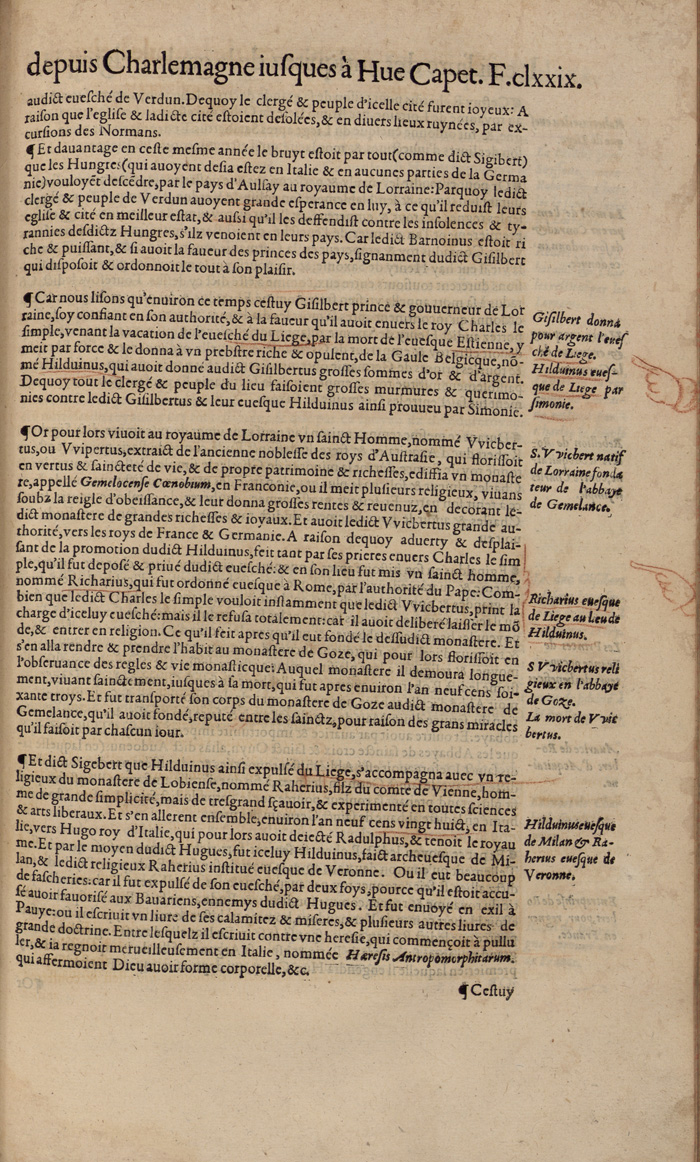 depuis Charlemagne iuſques à Hue Capet. F.clxxix.
audict eueſché de Verdun. Dequoy le clergé & peuple d'icelle cité furent ioyeux: A
raiſon que l'egliſe & ladicte cité eſtoient deſolées, & en diuers lieux ruynées, par ex-
curſions des Normans.
¶ Et dauantage en ceſte meſme année le bruyt eſtoit par tout (comme dict Sigibert)
que les Hungres (qui auoyent deſia eſtez en Italie & en aucunes parties de la Germa
nie) vouloyēt deſcēdre, par le pays d'Aulſay au royaume de Lorraine: Parquoy ledict
clergé & peuple de Verdun auoyent grande eſperance en luy, à ce qu'il reduiſt leurs
egliſe & cité en meilleur eſtat, & auſsi qu'il les deffendiſt contre les inſolences & ty-
rannies deſdictz Hungres, s'ilz venoient en leurs pays. Car ledict Barnoinus eſtoit ri
che & puiſſant, & ſi auoit la faueur des princes des pays, ſignanment dudict Giſilbert
qui diſpoſoit & ordonnoit le tout à ſon plaiſir.
¶ Car nous liſons qu'enuiron ce temps ceſtuy Giſilbert prince & gouuerneur de Lor
raine, ſoy confiant en ſon authorité, & à la faueur qu'il auoit enuers le roy Charles le
ſimple, venant la vacation de l'eueſché du Liege, par la mort de l'eueſque Eſtienne, y
meit par force & le donna à vn prebſtre riche & opulent, de la Gaule Belgicque, nō-
mé Hilduinus, qui auoit donné audict Giſilbertus groſſes ſommes d'or & d'argent.
Dequoy tout le clergé & peuple du lieu faiſoient groſſes murmures & querimo-
nies contre ledict Giſilbertus & leur eueſque Hilduinus ainſi prouueu par Simonie.
Giſilbert donna
pour argent l'eueſ
ché de Liege.
Hilduinus eueſ-
que de Liege par
ſimonie.
¶ Or pour lors viuoit au royaume de Lorraine vn ſainct Homme, nommé Vvicber-
tus, ou Vvipertus, extraict de l'ancienne nobleſſe des roys d'Auſtraſie, qui floriſſoit
en vertus & ſaincteté de vie, & de propre patrimoine & richeſſes, ediffia vn monaſte
re, appellé Gemelocenſe Cœnobium, en Franconie, ou il meit pluſieurs religieux, viuans
ſoubz la reigle d'obeiſſance, & leur donna groſſes rentes & reuenuz, en decorant le-
dict monaſtere de grandes richeſſes & ioyaux. Et auoit ledict Vvicbertus grande au-
thorité, vers les roys de France & Germanie. A raiſon dequoy aduerty & deſplai-
ſant de la promotion dudict Hilduinus, feit tant par ſes prieres enuers Charles le ſim
ple, qu'il fut depoſé & priué dudict eueſché: & en ſon lieu fut mis vn ſainct homme,
nommé Richarius, qui fut ordonné eueſque à Rome, par l'authorité du Pape: Com-
bien que ledict Charles le ſimple vouloit inſtamment que ledict Vvicbertus, print la
charge d'iceluy eueſché: mais il le refuſa totalement: car il auoit deliberé laiſſer le mō
de, & entrer en religion. Ce qu'il feit apres qu'il eut fondé le deſſudict monaſtere. Et
s'en alla rendre & prendre l'habit au monaſtere de Goze, qui pour lors floriſſoit en
l'obſeruance des regles & vie monaſticque: Auquel monaſtere il demoura longue-
ment, viuant ſainctement, iuſques à ſa mort, qui fut apres enuiron l'an neuf cens ſoi-
xante troys. Et fut tranſporté ſon corps du monaſtere de Goze audict monaſtere de
Gemelance, qu'il auoit fondé, reputé entre les ſainctz, pour raiſon des grans miracles
qu'il faiſoit par chaſcun iour.
S. Vvicbert natif
de Lorraine fonda
teur de l'abbaye
de Gemelance.
Richarius eueſque
de Liege au lieu de
Hilduinus.
S Vvicbertus reli
gieux en l'abbayé
de Goze.
La mort de Vvic
bertus.
¶ Et dict Sigebert que Hilduinus ainſi expulſé du Liege, s'accompagna auec vn re-
ligieux du monaſtere de Lobienſe, nommé Raherius, filz du comte de Vienne, hom-
me de grande ſimplicité, mais de treſgrand ſçauoir, & experimenté en toutes ſciences
& arts liberaux. Et s'en allerent enſemble, enuiron l'an neuf cens vingt huict, en Ita-
lie, vers Hugo roy d'Italie, qui pour lors auoit deiecté Radulphus, & tenoit le royau
me. Et par le moyen dudict Hugues, fut iceluy Hilduinus, faict archeueſque de Mi-
lan, & ledict religieux Raherius inſtitué eueſque de Veronne. Ou il eut beaucoup
de faſcheries: car il fut expulſé de ſon eueſché, par deux foys, pource qu'il eſtoit accu-
ſé auoir fauoriſé aux Bauariens, ennemys dudict Hugues. Et fut enuoyé en exil à
Pauye: ou il eſcriuit vn liure de ſes calamitez & miſeres, & pluſieurs autres liures de
grande doctrine. Entre leſquelz il eſcriuit contre vne hereſie, qui commençoit à pullu
ler, & ia regnoit merueilleuſement en Italie, nommée Hæreſis Antropomorphitarum.
qui affermoient Dieu auoir forme corporelle, &c.
Hilduinus eueſque
de Milan & Ra-
herius eueſque de
Veronne.
¶ Ceſtuy